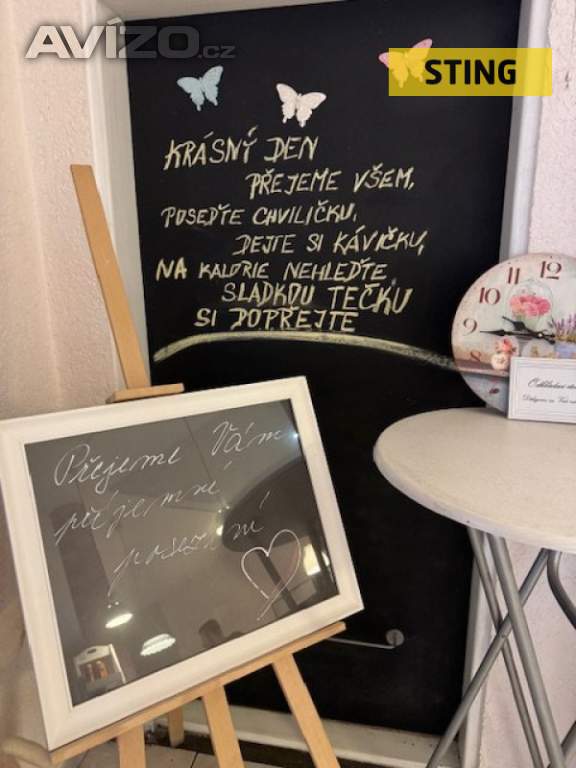 AVÍZO.cz
STING
KRÁSNÝ DEN
PŘEJEME VŠEM,
POSEĎTE CHVILIČKU,
DEJTE SI KÁVIČKU,
NA KALORIE NEHLEĎTE,
SLADKOU TEČKU
SI DOPŘEJTE
12
11
10
9
8
7
3
Přejeme Vám
příjemné
posezení